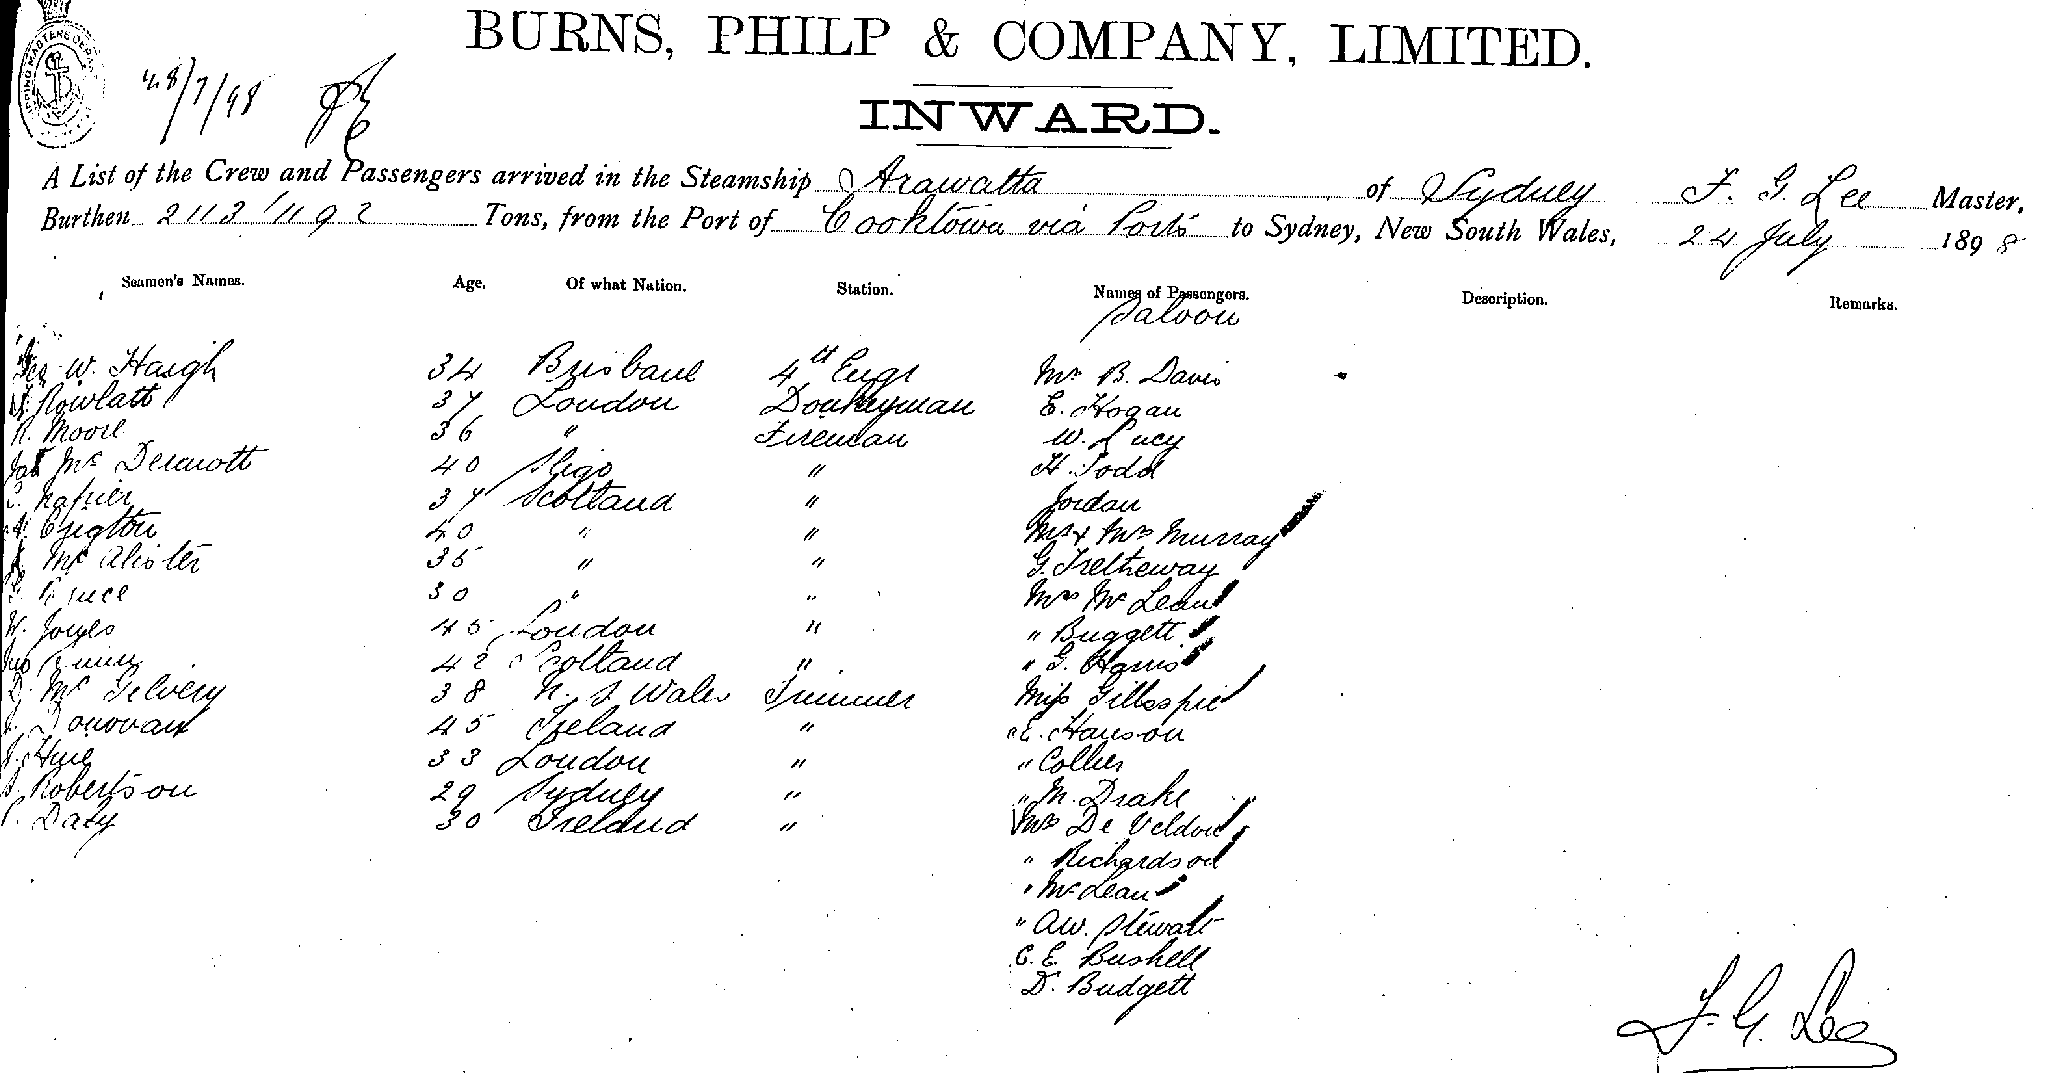 BURNS, PHILP & COMPANY, LIMITED.
28/7/98
INWARD.
A List of the Crew and Passengers arrived in the Steamship Arawatta of Sydney F. G. Lee Master,
Burthen 2113/1192 Tons, from the Port of Cooktown via Ports to Sydney, New South Wales, 24 July 1898
Seamen's Names. Age. Of what Nation. Station. Names of Passengers. Description. Remarks.
Saloon
W. Haigh 34 Brisbane 4th Engr Mr B. Davis
Rowlatt 37 London Donkeyman E. Hogan
R. Moore 36 " Fireman W. Lucy
Jas Mc Dermott 40 Sligo " H. Todd
C. Napier 37 Scotland " Jordan
40 " " Mr & Mrs Murray
Mc Alister 35 " " G. Tretheway
30 " " Mrs Mc Lean
W. 45 London " " Buggett
42 Scotland " " G. Harris
D. Mc Gelvery 38 N. S Wales Trimmer Miss Gillespie
Donovan 45 Ireland " E. Hanson
33 London " " Collier
Robertson 29 Sydney " " M. Drake
Daly 30 Ireland " Mrs De Veldon
" Richardson
" McLean
" A.W. Stewart
C. E. Bushell
D. Budgett
F. G. Lee